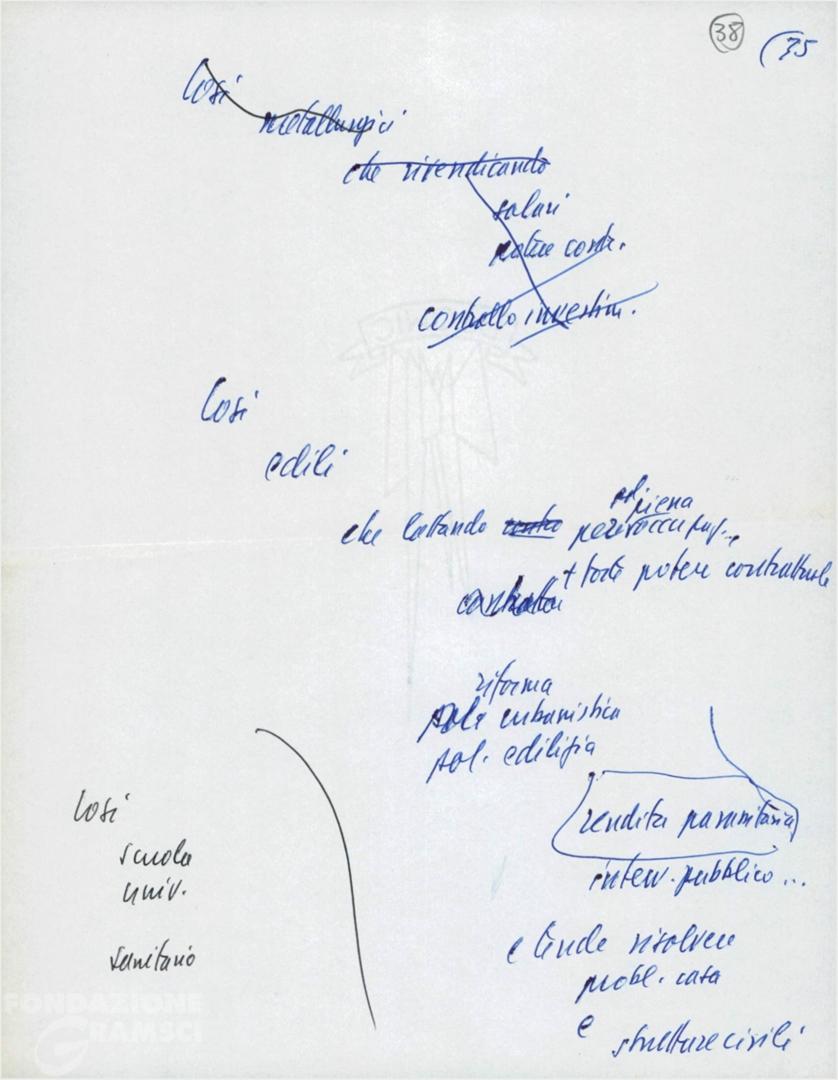 38
(35
Così
metallurgici
che rivendicando
salari
potere contr.
controllo investim.
Così
edili
che lottando contro per piena occupaz..
+ forte potere contrattuale
riforma
urbanistica
pol. edilizia
rendita parassitaria
interv. pubblico...
e tende risolvere
probl. casa
e
strutture civili
Così
scuola
univ.
sanitario
FONDAZIONE
GRAMSCI